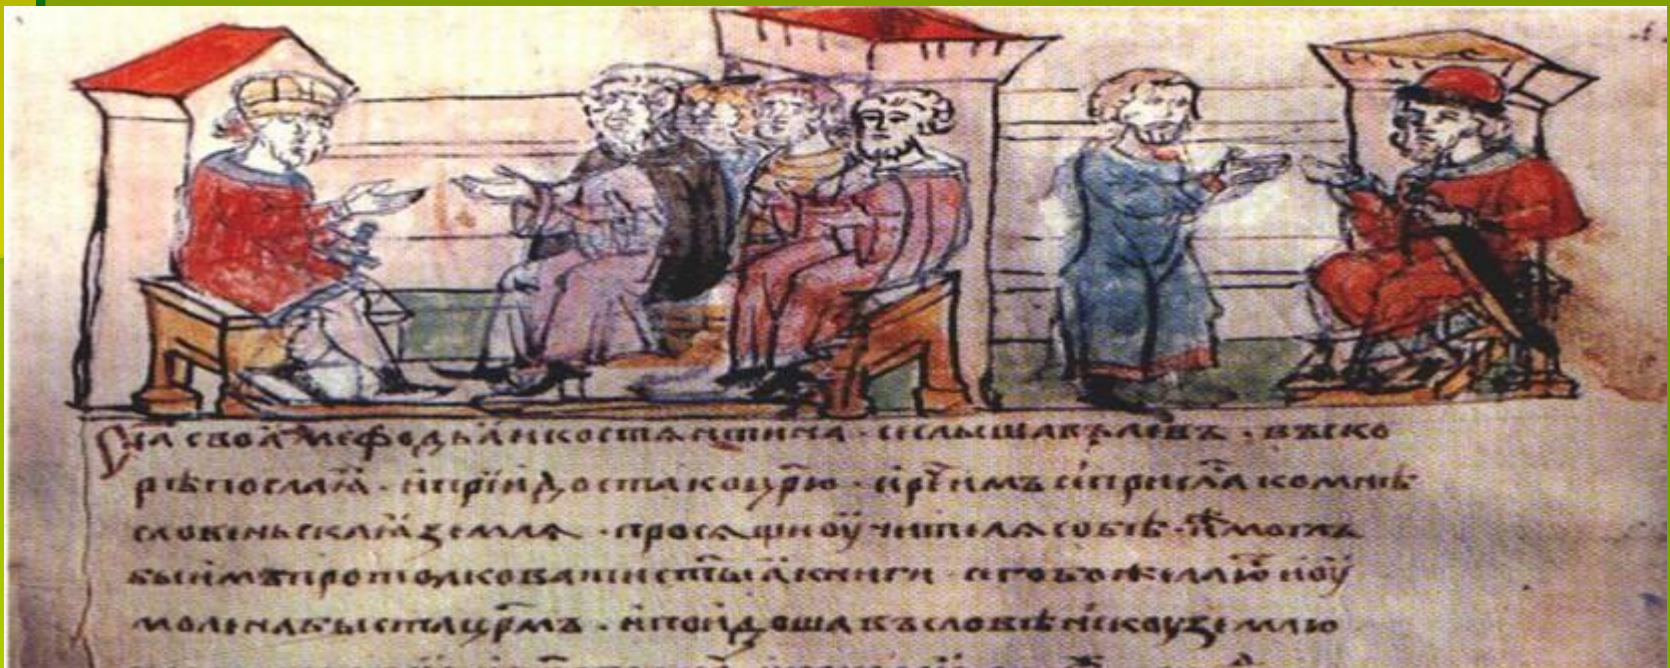 сн҃а своѧ мефодьѧ и костѧнтина · и слышавъ левъ · въско
рѣ посла ѧ · и прїидоста ко цр҃ю · и реⷱ҇ имъ се присла ко мнѣ
словеньскаѧ землѧ · просѧщи ѹчителѧ собѣ · моглъ
бы имъ протолковати ст҃ыѧ книги · сего бо желаю и ѹ
молена быста цр҃мъ · и поидоша въ словѣньскѹ землю